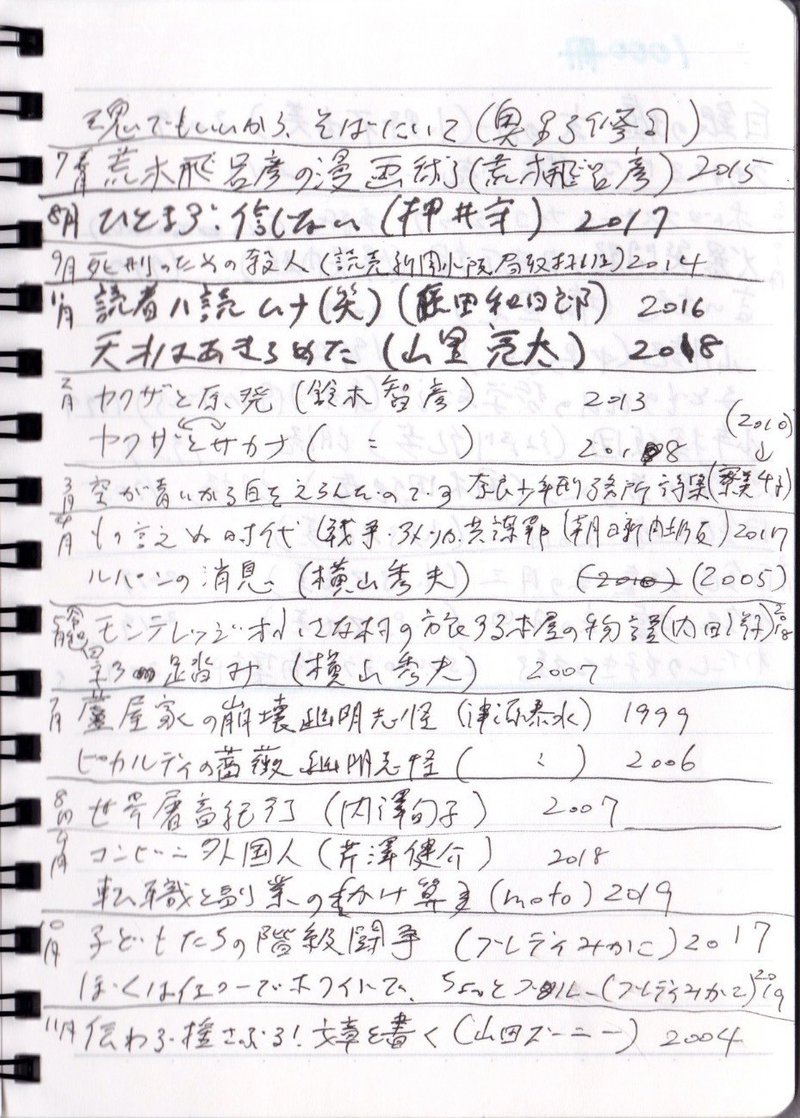 魂でもいいから、そばにいて(奥野修司)
7月 荒木飛呂彦の漫画術(荒木飛呂彦) 2015
8月 ひとまず、信じない(押井守) 2017
9月 死刑のための殺人(読売新聞水戸支局取材班) 2014
11月 読者ハ読ムナ(笑)(藤田和日郎) 2016
天才はあきらめた(山里亮太) 2018
2月 ヤクザと原発(鈴木智彦) 2013
ヤクザとサカナ( 〃 ) 2018
(2010)
3月 空が青いから白をえらんだのです 奈良少年刑務所詩集(寮美千子)
4月 もの言えぬ時代(戦争・アメリカ・共謀罪(朝日新聞) 2017
ルパンの消息(横山秀夫) (2010) (2005)
5月 モンテレッジオ 小さな村の旅する本屋の物語(内田洋子) 2018
足踏み(横山秀夫) 2007
7月 蘆屋家の崩壊 幽明志怪(津原泰水) 1999
ピカルディの薔薇 幽明志怪( 〃 ) 2006
8月 世界屠畜紀行(内澤旬子) 2007
9月 コンビニ外国人(芹澤健介) 2018
転職と副業のかけ算(moto) 2019
10月 子どもたちの階級闘争(ブレディみかこ) 2017
ぼくはイエローでホワイトで、ちょっとブルー(ブレディみかこ) 2019
11月 伝わる・揺さぶる!文章を書く(山田ズーニー) 2004